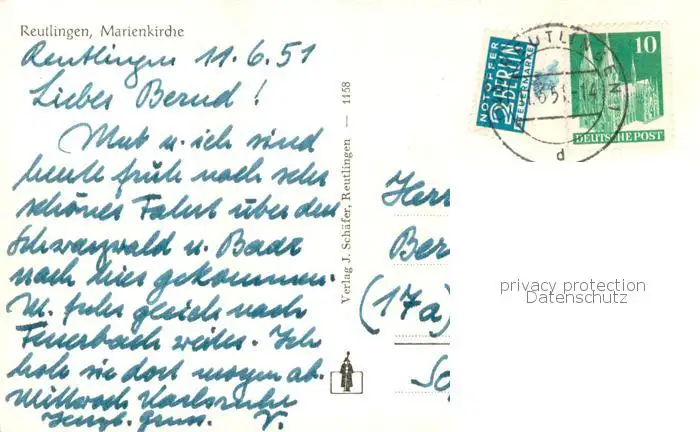 Reutlingen, Marienkirche
Reutlingen 11.6.51
Liebes Bernd!
Mut u. ich sind
heute früh nach sehr
schönes Fahrt über den
Schwarzwald u. Bade
nach hier gekommen.
M. fuhr gleich nach
Feuerbach weites. Ich
hole sie dort morgen ab.
Mittwoch Karlsruhe
Herzl. Gruss. V.
Verlag J. Schäfer, Reutlingen — 1158
NOTOPFER
2 BERLIN
STEUERMARKE
REUTLINGEN 1
.6.51.-14
d
10
DEUTSCHE POST
Herr
Ber
(17a)
privacy protection
Datenschutz